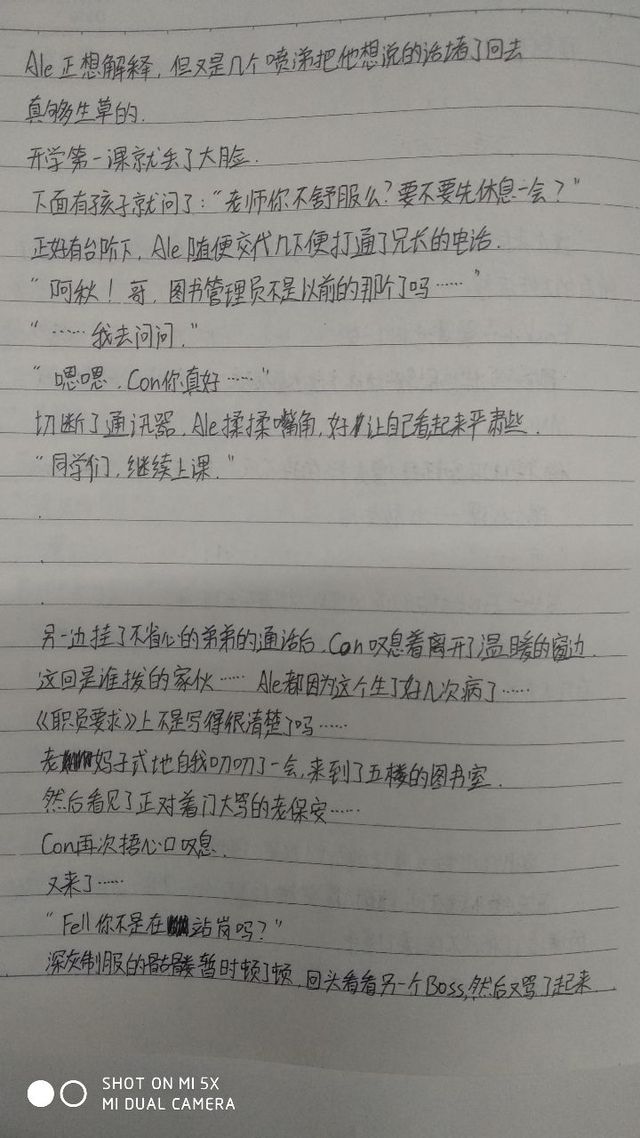 Ale正想解释，但又是几个喷涕把他想说的话堵了回去
真够生草的.
开学第一课就丢了大脸.
下面有孩子就问了："老师你不舒服么？要不要先休息一会？"
正好有台阶下，Ale随便交代几下便打通了兄长的电话.
"阿秋！哥，图书管理员不是以前的那个了吗……"
"……我去问问."
"嗯嗯，Con你真好……"
切断了通讯器，Ale揉揉嘴角，好让自己看起来严肃些.
"同学们，继续上课."
另一边挂了不省心的弟弟的通话后，Con叹息着离开了温暖的窗边.
这回是谁拨的家伙…… Ale都因为这个生了好几次病了……
《职员要求》上不是写得很清楚了吗……
老妈子式地自我叨叨了一会，来到了五楼的图书室.
然后看见了正对着门大骂的老保安……
Con再次捂心口叹息.
又来了……
"Fell你不是在站岗吗？"
深灰制服的骷髅暂时顿了顿，回头看看另一个Boss,然后又骂了起来.
SHOT ON MI 5X
MI DUAL CAMERA